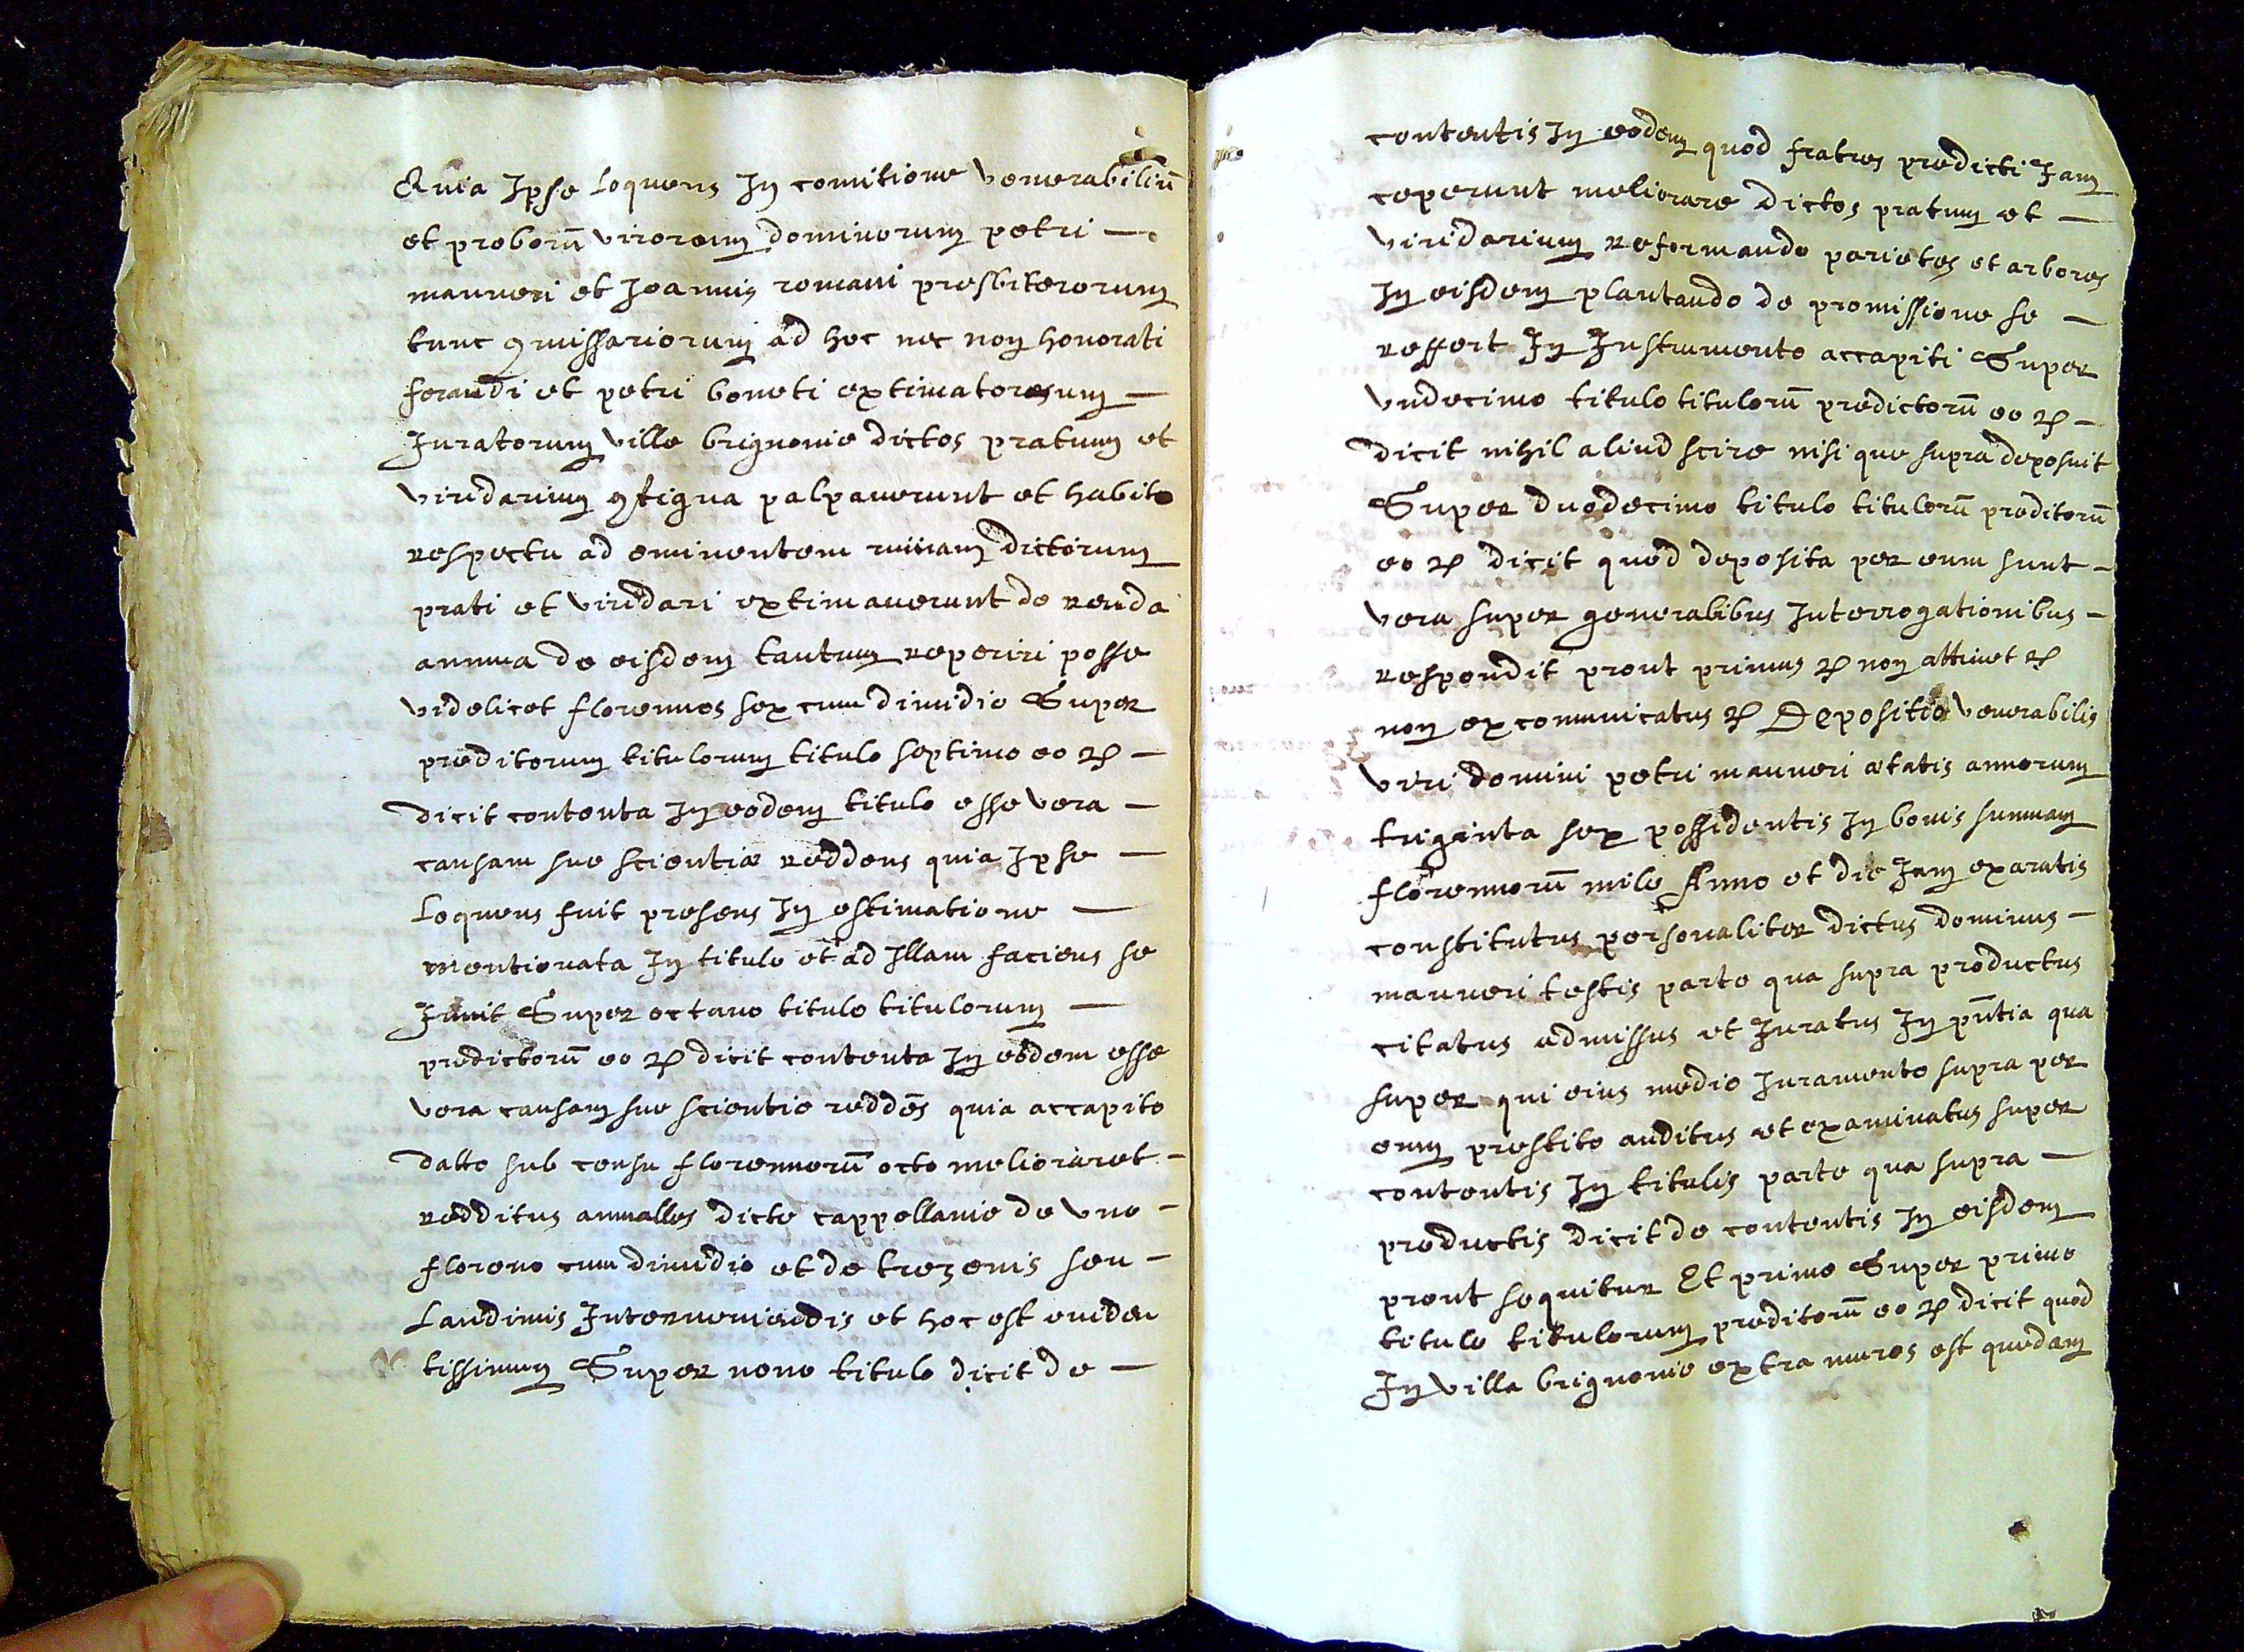 Quia Ipse loquens In comitione venerabiliū
et proborū virorum dominorum petri —
manneri et Joannis romani presbiterorum
tunc 9missariorum ad hoc nec non honorati
ferandi et petri boneti extimatorum —
Juratorum ville brignonie dictos pratum et
viridarium 9tigua palpaverunt et habito
respectu ad eminentem ruinam dictorum
prati et viridari extimaverunt de renda
annua de eisdem tantum reperiri posse
videlicet florennos sex cum dimidio Super
preditorum titulorum titulo septimo eo etc —
dicit contenta In eodem titulo esse vera —
causam sue scientiæ reddens quia Ipse —
Loquens fuit presens In estimatione —
mentionata In titulo et ad Illam faciens se
Iuuit Super octavo titulo titulorum —
predictorū eo etc dicit contenta In eodem esse
vera causam sue scientie reddēs quia accapito
datto sub censu florennorū octo melioraret —
redditus annualles dicte cappellanie de uno —
floreno cum dimidio et de trezenis seu —
Laudimis Interveniendis et hoc est eviden
tissimum Super nono titulo dicit de —
contentis In eodem quod fratres predicti Jam
ceperunt meliorare dictos pratum et —
viridarium reformando parietes et arbores
In eisdem plantando de promissione se —
reffert In Instrumento accapiti Super
undecimo titulo titulorū predictorū eo etc —
dicit nihil aliud scire nisi que supra deposuit
Super duodecimo titulo titulorū preditorū
eo etc dicit quod deposita per eum sunt —
vera super generalibus Interrogationibus —
respondit prout primus etc non attinet etc
non excomunicatus etc Depositio venerabilis
viri domini petri manneri ætatis annorum
triginta sex possidentis In bonis summam
florennorū mile Anno et die Jam exaratis
constitutus personaliter dictus dominus —
manneri testis parte qua supra productus
citatus admissus et Juratus In pn̄tia qua
super qui eius medio Juramento supra per
eum prestito auditus et examinatus super
contentis In titulis parte qua supra —
productis dicit de contentis In eisdem
prout sequitur Et primo Super primo
titulo titulorum preditorū eo etc dicit quod
In villa brignonie extra muros est quedam